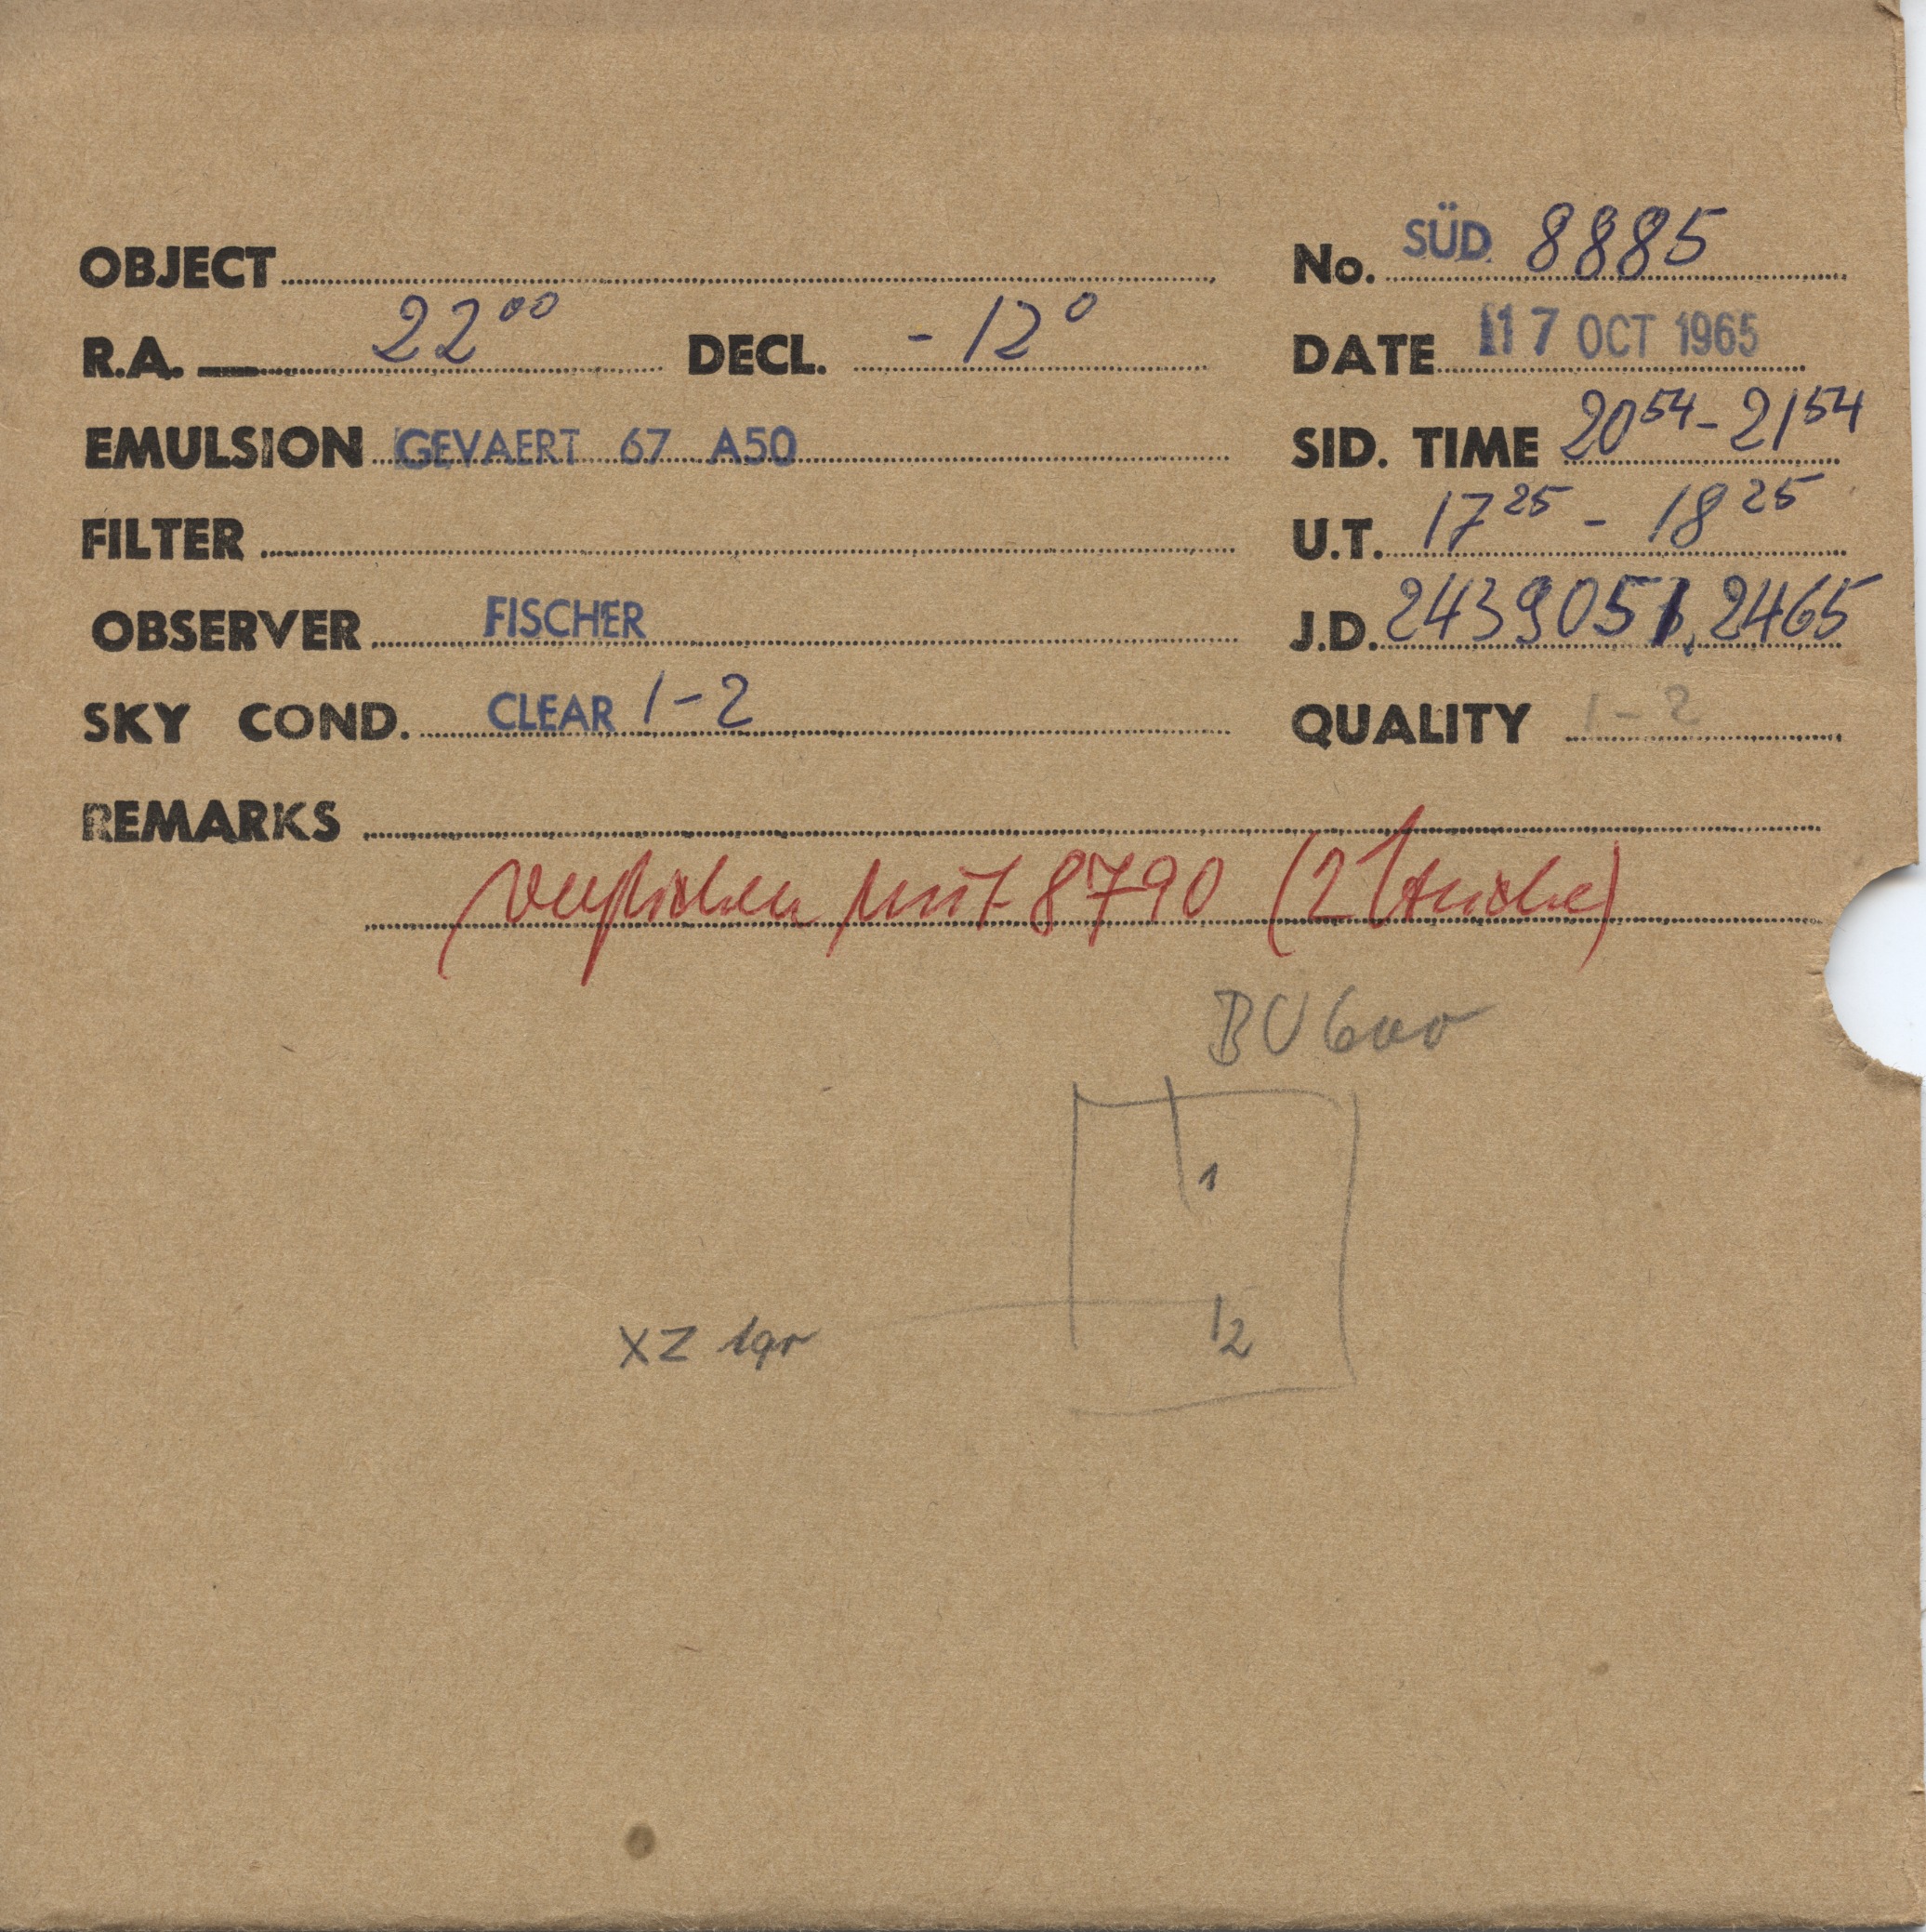 OBJECT
No. SÜD 8885
R.A. 22⁰⁰ DECL. -12°
DATE 17 OCT 1965
EMULSION GEVAERT 67 A50
SID. TIME 20⁵⁴-21⁵⁴
FILTER
U.T. 17²⁵ - 18²⁵
OBSERVER FISCHER
J.D. 2439051,2465
SKY COND. CLEAR 1-2
QUALITY 1-2
REMARKS
verglichen mit 8790 (2 Striche)
BV 600
1
2
XZ lqr